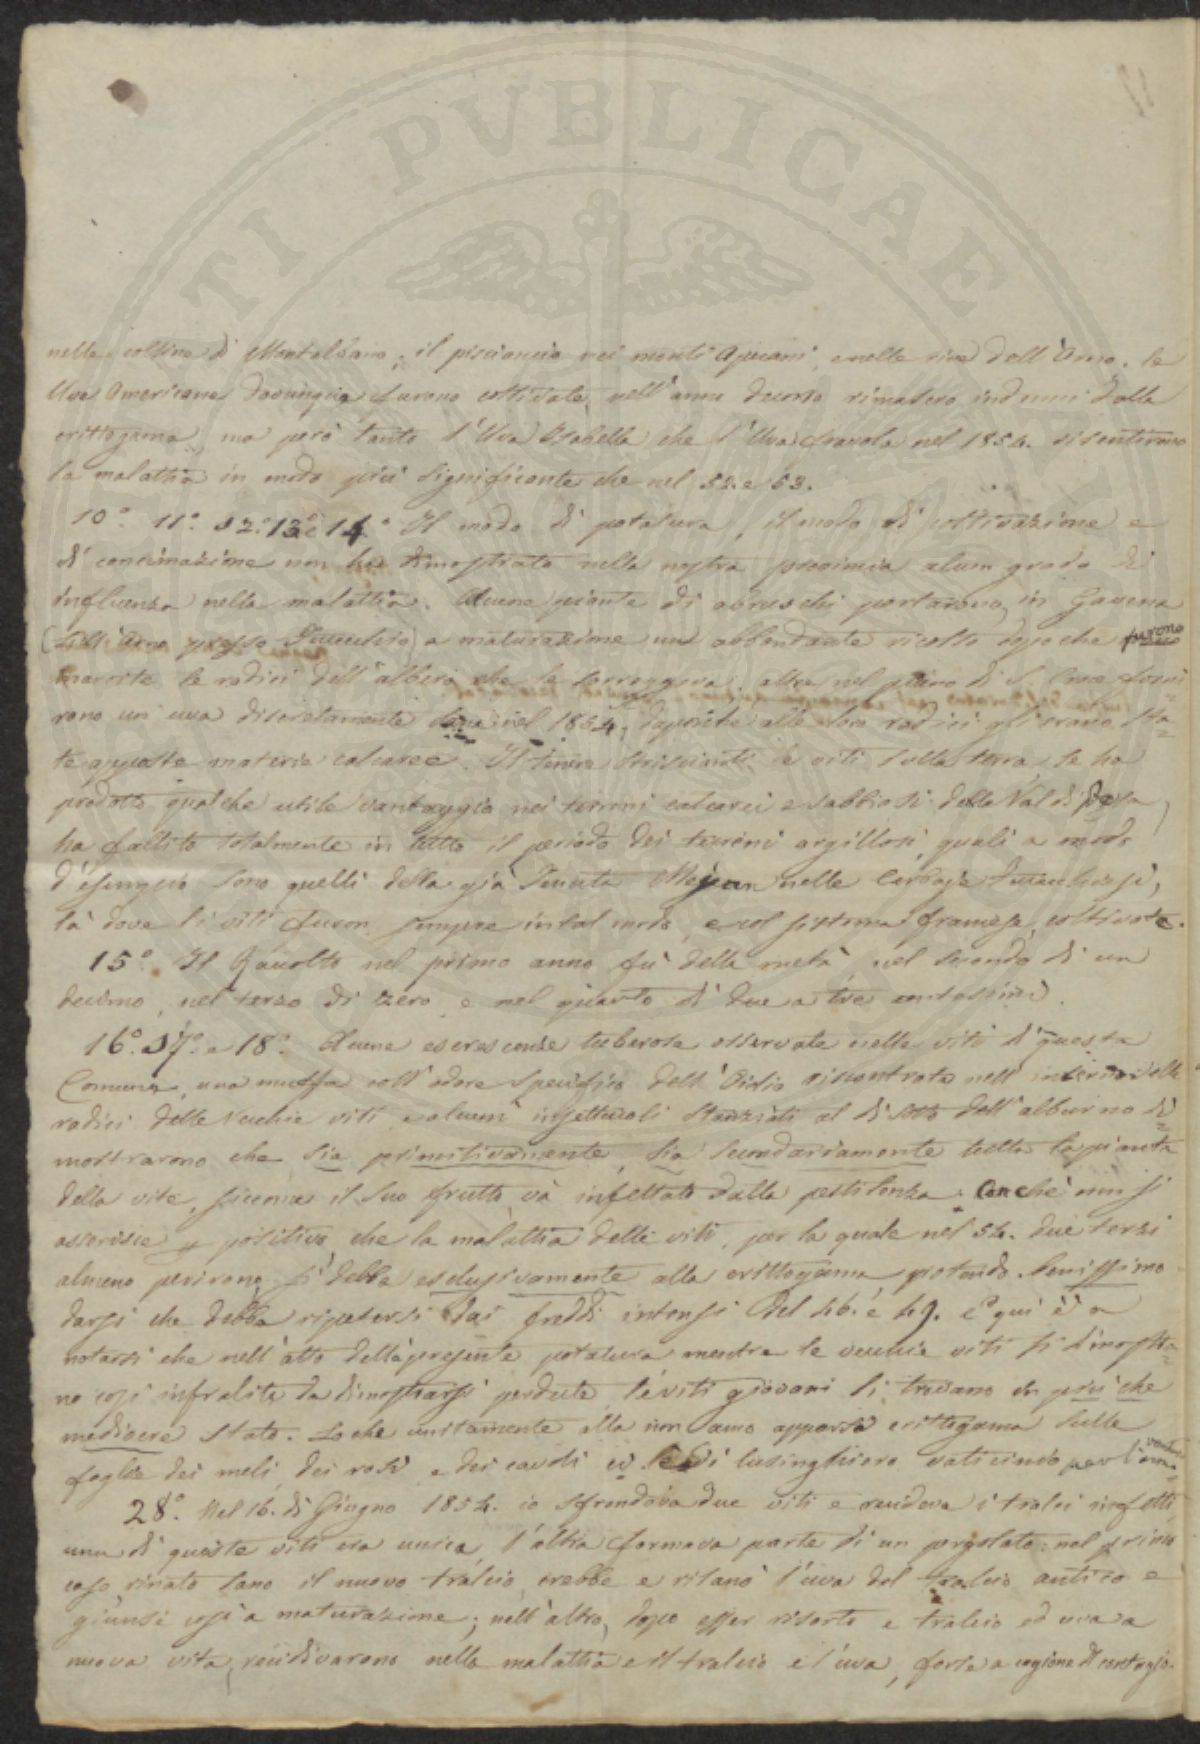 PVBLICAE
nelle colline di Montalbano; il pisciancio nei monti Apuani, e nelle rive dell'Arno. le
Uve Americane dovunque furono coltivate nell'anno decorso rimasero indenni dalla
crittogama, ma però tanto l'Uva Isabella che l'Uva fravola nel 1854. risentirono
la malattia in modo più significante che nel 52. e 53.
10.° 11.° 12.° 13.° e 14.° Il modo di potatura, il modo di coltivazione e
di concimazione non ha dimostrato nella nostra provincia alcun grado di
influenza nella malattia. Alcune piante di abruschi portarono, in Gavena
(sull'Arno presso Fucechio) a maturazione un abbondante ricolto dopo che furono
marcite le radici dell'albero che le sorreggeva. altre nel piano di S. Croce forni
rono un uva discretamente sana nel 1854, dopoiche alle loro radici gli erano sta=
te apposte materie calcaree. Il tenere striscianti le viti sulla terra, se ha
prodotto qualche utile vantaggio nei terreni calcarei e sabbiosi della Val di Pesa,
ha fallito totalmente in tutto il periodo dei terreni argillosi, quali a modo
d'esempio sono quelli della già Tenuta nelle Cerbaje Fucechiesi,
là dove li viti furon sempre in tal modo, e col sistema francese, coltivate.
15.° Il Raccolto nel primo anno fù della metà, nel secondo di un
decimo, nel terzo di zero, e nel quarto di due a tre centesimi.
16.° 17.° e 18.° Alcune escrescenze tuberose osservate nelle viti di questa
Comune, una muffa coll'odore specifico dell'Oidio riscontrata nell'interno delle
radici delle vecchie viti, e alcuni insettucoli stanziati al di sotto dell'alburno di=
mostrarono che sia primitivamente, sia secondariamente tutta la pianta
della vite, siccome il suo frutto và infettato dalla pestilenza. Conchè non si
asserisce positivo, che la malattia delle viti, per la quale nel 54. due terzi
almeno perirono, si debba esclusivamente alla crittogama potendo benissimo
darsi che debba ripetersi dai freddi intensi del 46. e 49. e quì è a
notarsi che nell'atto della presente potatura mentre le vecchie viti si dimostra=
no così infralite da dimostrarsi perdute, le viti giovani si trovano in più che
mediocre stato. Lo che unitamente alla non anco apparsa crittogama sulle
foglie dei meli, dei rosi e dei cavoli ci è di lusinghiero vaticinio per l'anno
28.° Nel 16. di Giugno 1854. io sfrondava due viti e recideva i tralci infetti,
una di queste viti era unica, l'altra formava parte di un pergolato: nel primo
caso rinato sano il nuovo tralcio crebbe e risanò l'uva del tralcio antico e
giunse così a maturazione; nell'altro, dopo esser risorto e tralcio ed uva a
nuova vita, recidivarono nella malattia e il tralcio e l'uva, forse a cagione di contagio.